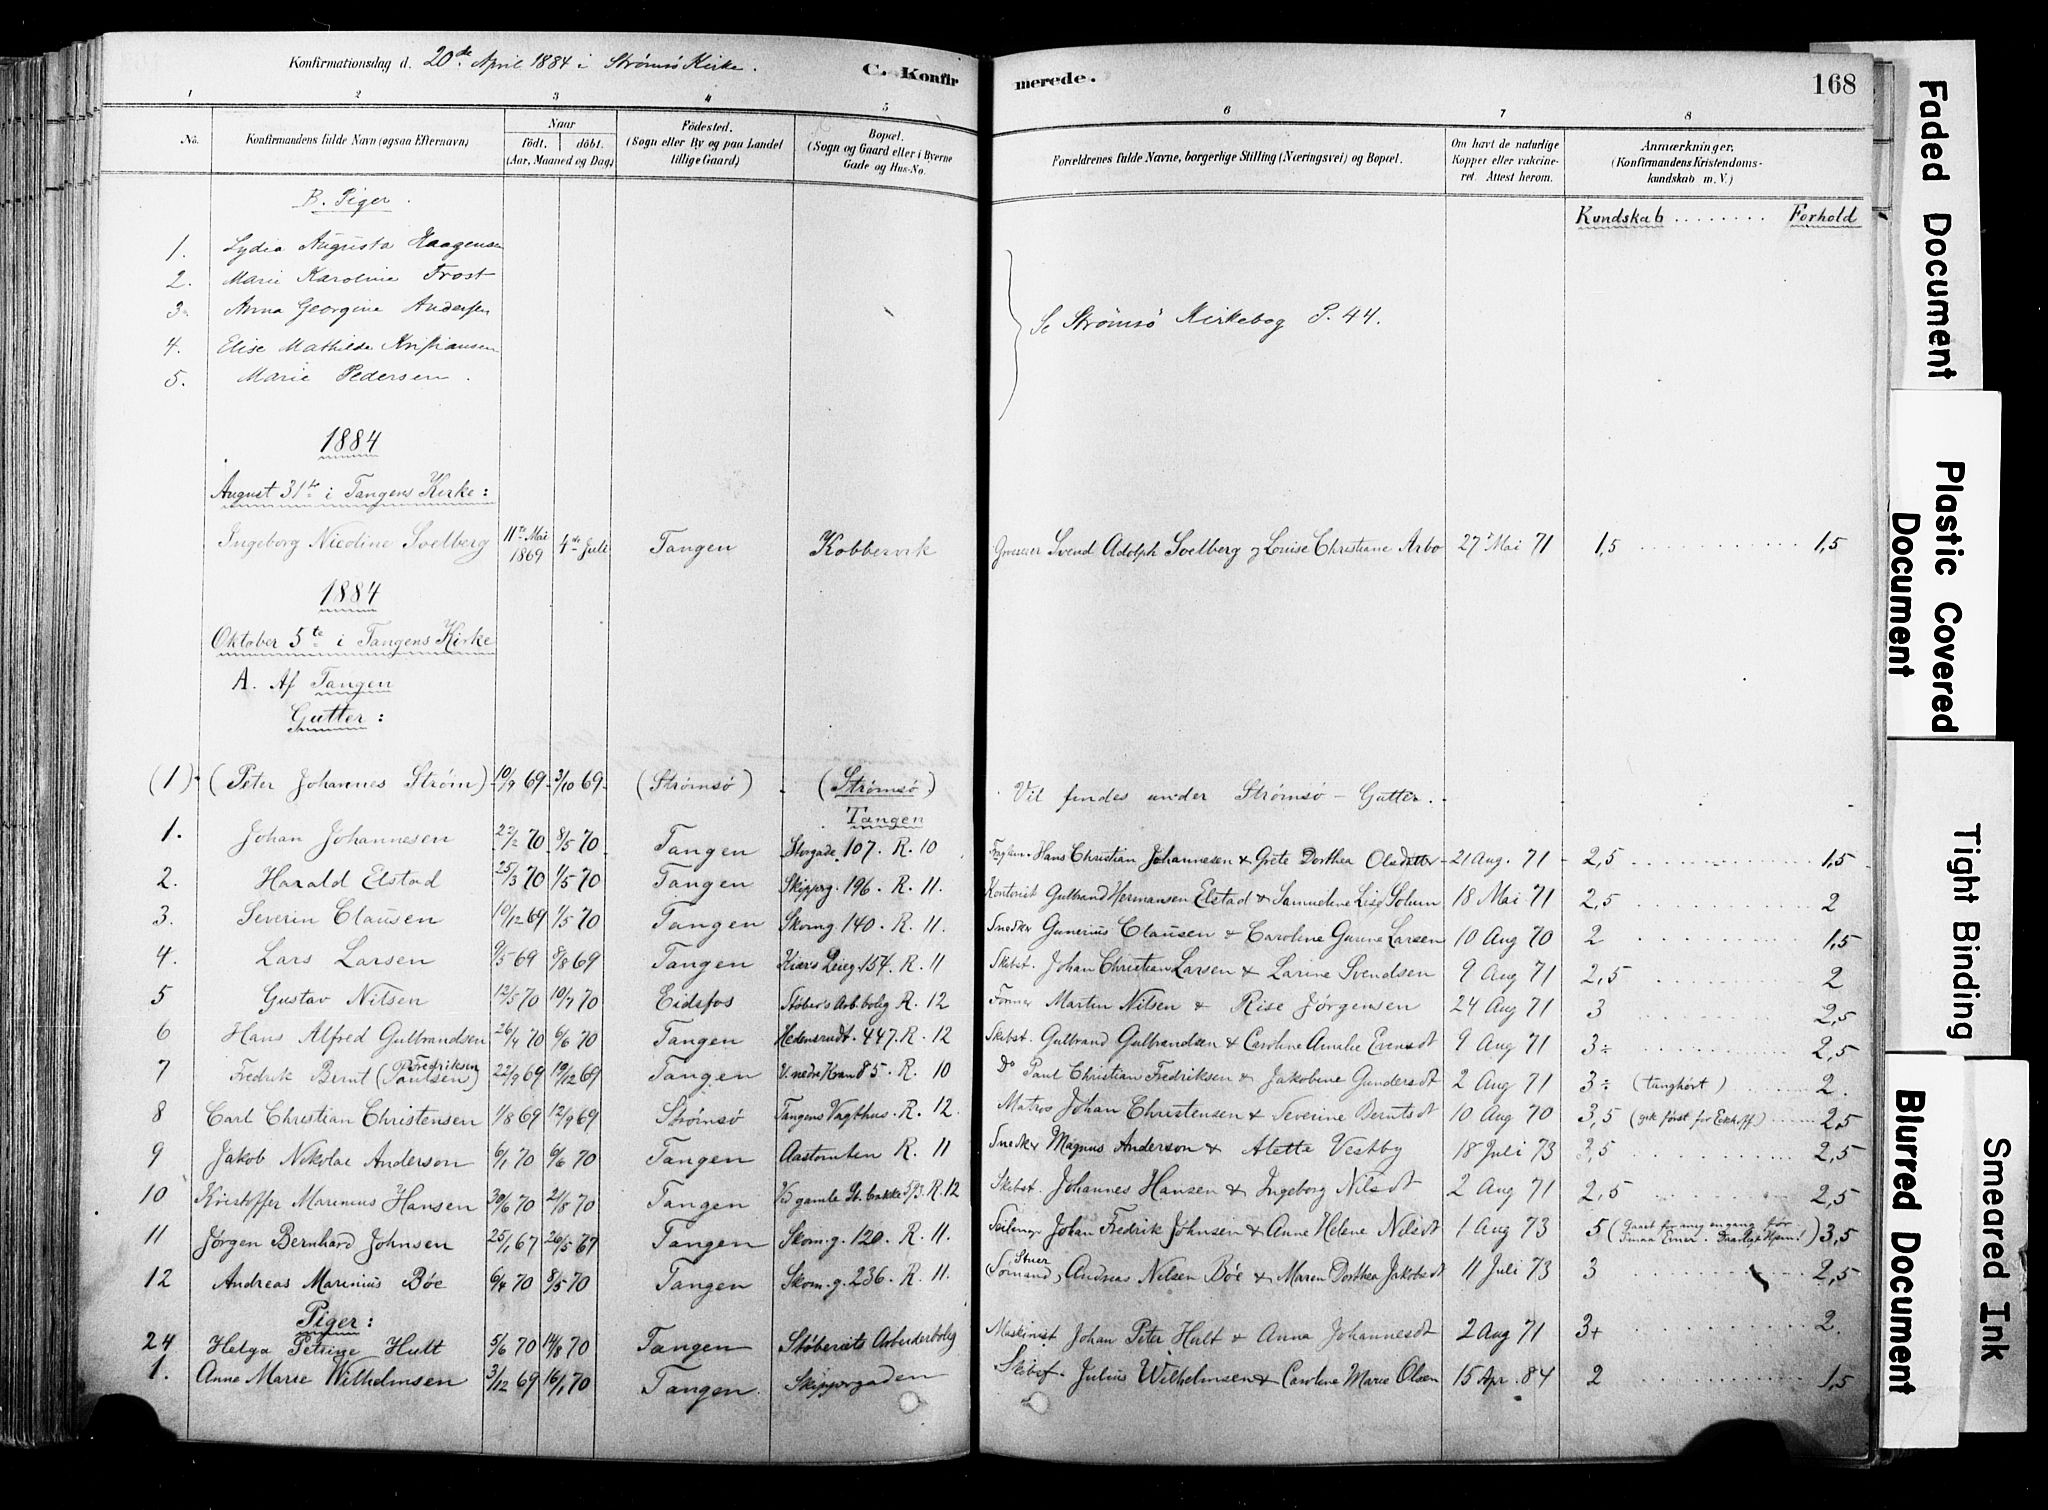 Konfirmationsdag d. 20de April 1884 i Strømsø Kirke.
C. Konfirmerede.
168
1 2 3 4 5 6 7 8
No.
Konfirmandens fulde Navn (ogsaa Efternavn)
Naar
födt. döbt.
(Aar, Maaned og Dag)
Födested.
(Sogn eller By og paa Landet
tillige Gaard)
Bopæl.
(Sogn og Gaard eller i Byerne
Gade og Hus-No.
Forældrenes fulde Navne, borgerlige Stilling (Næringsvei) og Bopæl.
Om havt de naturlige
Kopper eller vakcine-
ret. Attest herom.
Anmærkninger.
(Konfirmandens Kristendoms-
kundskab m. V.)
B. Piger.
Kundskab ........ Forhold
1. Lydia Augusta Haagensen
2. Marie Karoline Frost
3. Anna Georgine Andersen
4. Elise Mathilde Kristiansen
5. Marie Pedersen.
Se Strømsö Kirkebog P. 44.
1884
August 31te i Tangens Kirke:
Ingeborg Nicoline Soelberg 11te Mai 1869 4de Juli Tangen Kobbervik Svend Adolph Soelberg og Louise Christiane Arbo 27 Mai 71 1,5 1,5
1884
Oktober 5te i Tangens Kirke
A. Af Tangen
Gutter:
(1) (Peter Johannes Strøm) 10/9 69 3/10 69 (Strömsö) (Strømsø) Vil findes under Strømsö - Gutter.
Tangen
1. Johan Johannesen 22/2 70 8/5 70 Tangen Storgade 107. R. 10 Hans Christian Johannesen & Grete Dorthea Olsdatter 21 Aug. 71 2,5 1,5
2. Harald Elstad 25/3 70 1/5 70 Tangen Skipperg. 196. R. 11. Kontorist Gulbrand Hermansen Elstad & Samueline Lise Solum 18 Mai 71 2,5 2
3. Severin Clausen 10/12 69 1/5 70 Tangen Skomg. 140. R. 11. Snedker Gunerius Clausen & Caroline Gunne Larsen 10 Aug 70 2 1,5
4. Lars Larsen 9/5 69 8/8 69 Tangen Kiær's Leieg. 154. R. 11 Skibst. Johan Christian Larsen & Larine Svendsen 9 Aug 71 2,5 2
5 Gustav Nilsen 12/5 70 10/7 70 Eidsfos Støber's Arb.bolig R. 12 Former Martin Nilsen & Rise Jørgensen 24 Aug 71 3 2,5
6 Hans Alfred Gulbrandsen 26/4 70 6/6 70 Tangen Hedensrudt. 447. R. 12 Skibst. Gulbrand Gulbrandsen & Caroline Amalie Evensdt 9 Aug 71 3÷ 2,5
7 Fredrik Bernt (Paulsen) Fredriksen 22/9 69 19/12 69 Tangen V. nedre Kran 85. R. 10 Do Paul Christian Fredriksen & Jakobine Gundersdt 2 Aug 71 3÷ (tunghørt) 2.
8 Carl Christian Christensen 1/8 69 12/9 69 Strømsö Tangens Vagthus. R. 12. Matros Johan Christensen & Severine Berntsdt 10 Aug 70 3,5 (gik først for Eckhoff) 2,5
9 Jakob Nikolai Anderson 6/1 70 6/6 70 Tangen Aastomten R. 11 Snedker Magnus Anderson & Alette Vestby 18 Juli 73 3,5 2,5
10 Kristoffer Marinius Hansen 30/6 70 21/8 70 Tangen Ved gamle St. bakke 593. R. 12 Skibst. Johannes Hansen & Ingeborg Nilsdt 2 Aug 71 2,5 2,5
11 Jørgen Bernhard Johnsen 25/1 67 26/5 67 Tangen Skom.g. 120. R. 11. Johan Fredrik Johnsen & Anne Helene Nilsdt 1 Aug 73 5 (Gaaet for mig engang før. Daarligt Hjem!) 3,5
12 Andreas Marinius Bøe 6/4 70 8/5 70 Tangen Skom.g. 236. R. 11. Stuer (Sømand) Andreas Nilsen Bøe & Maren Dorthea Jakobsdt 11 Juli 73 3 2,5
Piger:
24 Helga Petrine Hult 5/6 70 14/8 70 Tangen Støberiets Arbeiderbolig Maskinist Johan Peter Hult & Anna Johannesdt 2 Aug 71 3+ 2.
1. Anne Marie Wilhelmsen 3/12 69 16/1 70 Tangen. Skippergaden Julius Wilhelmsen & Caroline Marie Olsen 15 Apr. 84 2 1,5
Faded Document
Plastic Covered Document
Tight Binding
Blurred Document
Smeared Ink